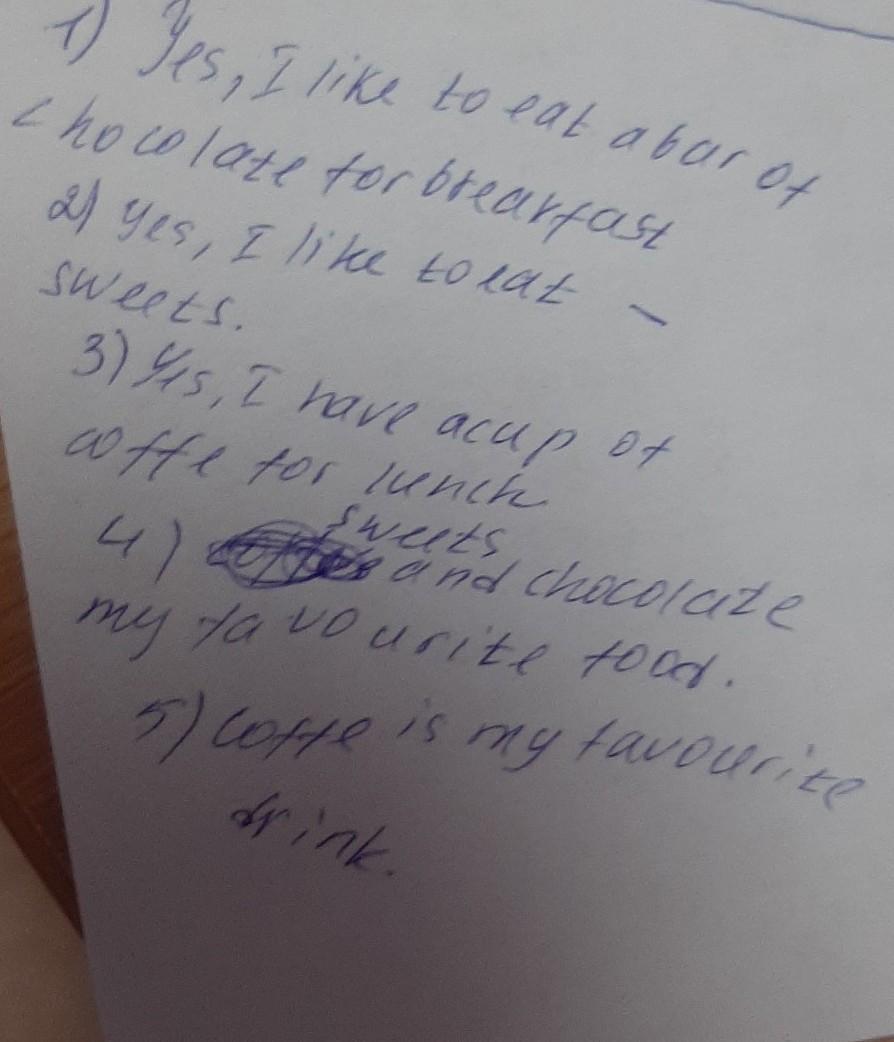 1) Yes, I like to eat a bar of
chocolate for breakfast
2) Yes, I like to eat -
sweets.
3) Yes, I have a cup of
coffe for lunch
sweets
4) and chocolate
my favourite food.
5) Coffe is my favourite
drink.